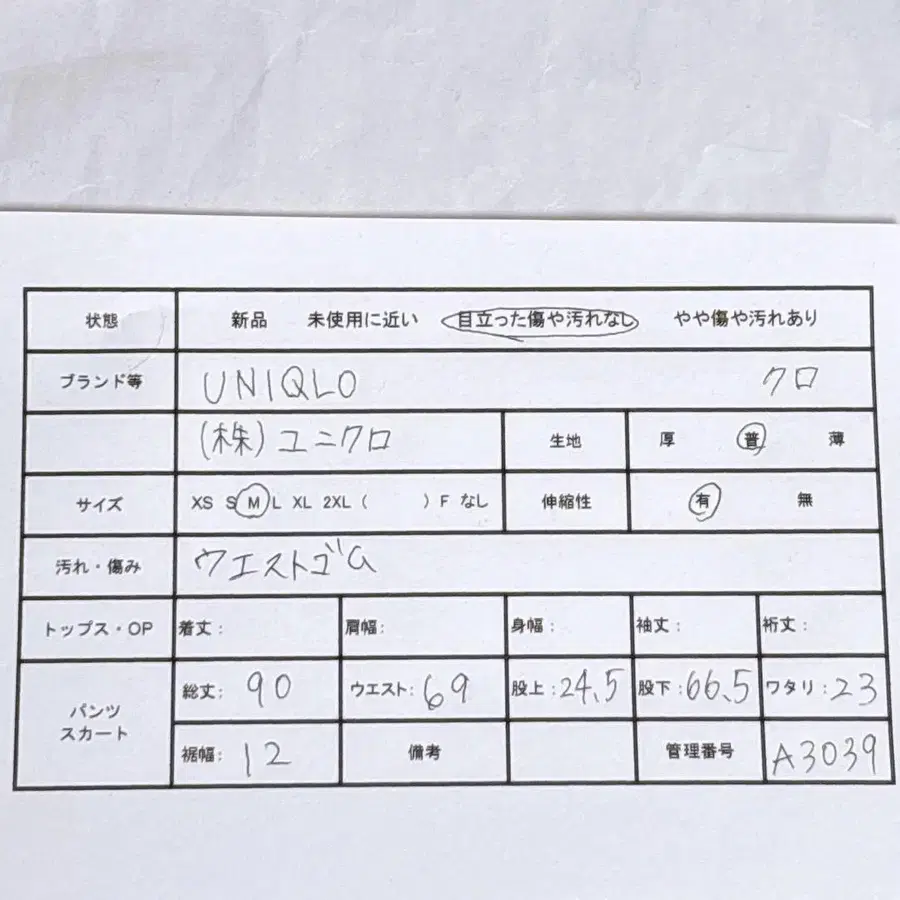 状態 新品 未使用に近い 目立った傷や汚れなし やや傷や汚れあり
ブランド等 UNIQLO クロ
(株)ユニクロ 生地 厚 普 薄
サイズ XS S M L XL 2XL ( ) F なし 伸縮性 有 無
汚れ・傷み ウエストゴム
トップス・OP 着丈: 肩幅: 身幅: 袖丈: 裄丈:
パンツ スカート 総丈: 90 ウエスト: 69 股上: 24.5 股下: 66.5 ワタリ: 23
裾幅: 12 備考 管理番号 A3039